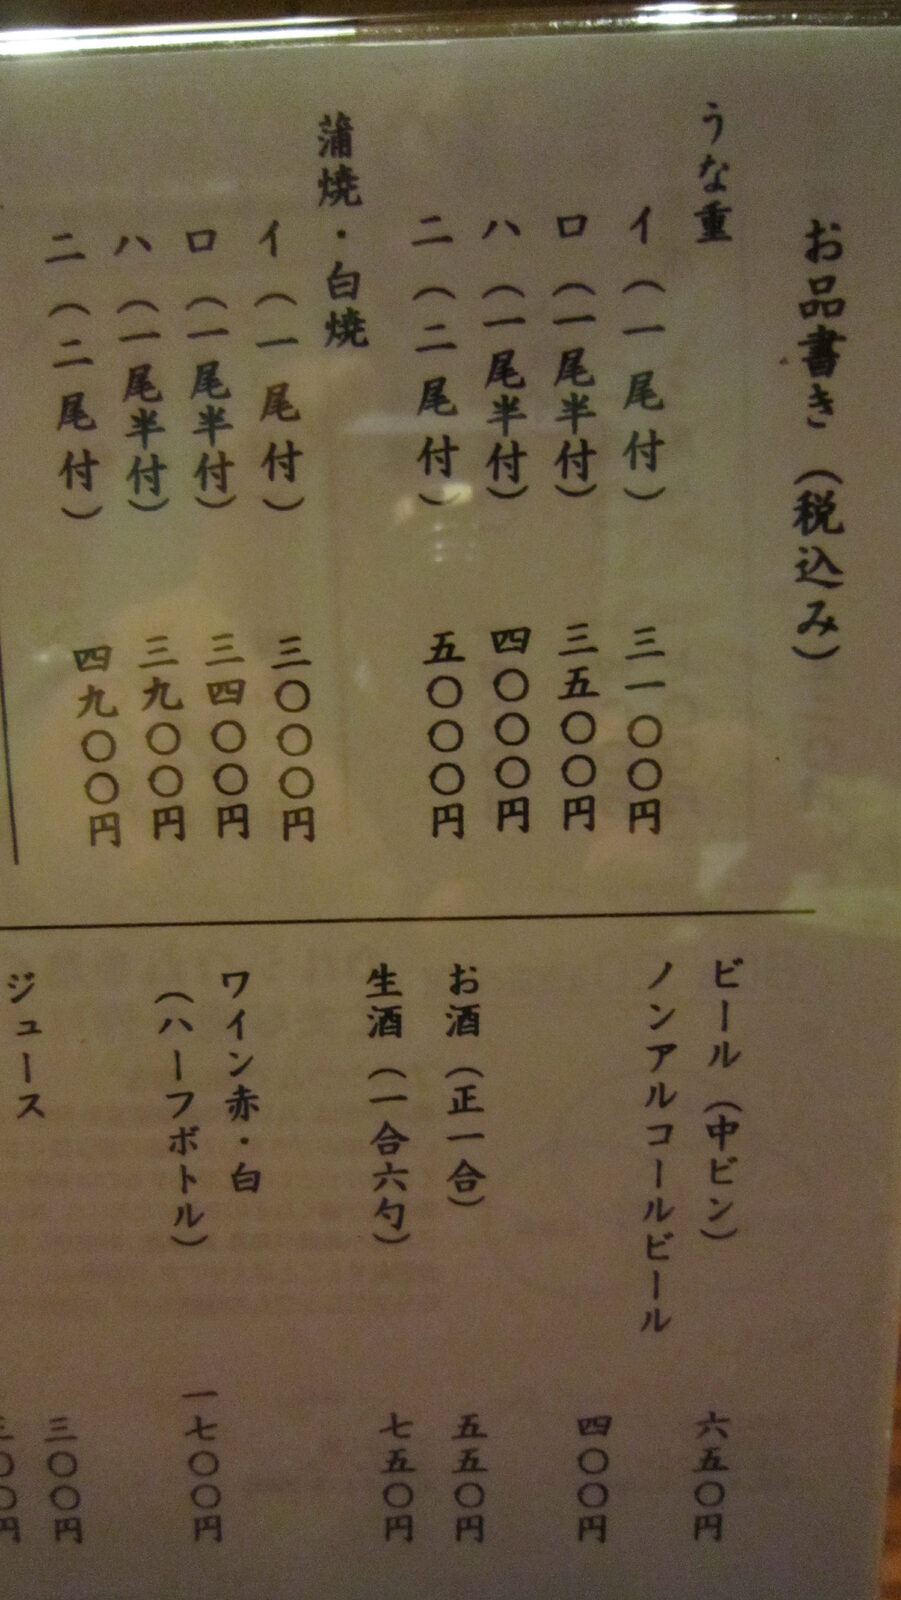 お品書き（税込み）
うな重
イ（一尾付） 三一〇〇円
ロ（一尾半付） 三五〇〇円
ハ（一尾半付） 四〇〇〇円
ニ（二尾付） 五〇〇〇円
蒲焼・白焼
イ（一尾付） 三〇〇〇円
ロ（一尾半付） 三四〇〇円
ハ（一尾半付） 三九〇〇円
ニ（二尾付） 四九〇〇円
ビール（中ビン） 六五〇円
ノンアルコールビール 四〇〇円
お酒（正一合） 五五〇円
生酒（一合六勺） 七五〇円
ワイン赤・白
（ハーフボトル） 一七〇〇円
ジュース 三〇〇円